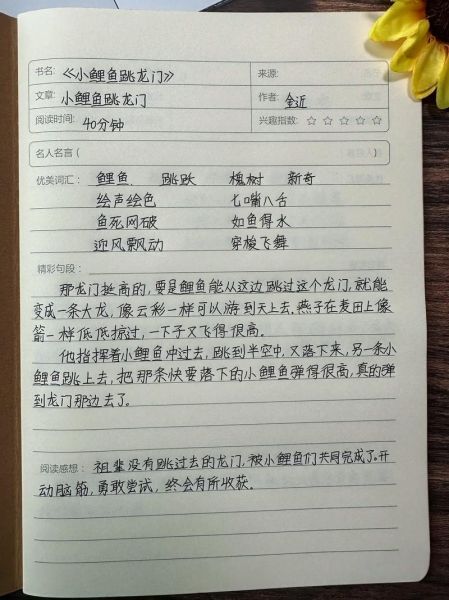 书名: 《小鲤鱼跳龙门》 来源:
文章: 小鲤鱼跳龙门 作者: 金近
阅读时间: 40分钟 兴趣指数: ☆ ☆ ☆ ☆ ☆
名人名言 ( (人)
优美词汇: 鲤鱼 跳跃 槐树 新奇
绘声绘色 七嘴八舌
鱼死网破 如鱼得水
迎风飘动 穿梭飞舞
精彩句段:
那龙门挺高的,要是鲤鱼能从这边跳过这个龙门,就能
变成一条大龙,像云彩一样可以游到天上去.燕子在麦田上像
箭一样低低掠过,一下子又飞得很高.
他指挥着小鲤鱼冲过去,跳到半空中,又落下来,另一条小
鲤鱼跳上去,把那条快要落下的小鲤鱼弹得很高,真的弹
到龙门那边去了.
阅读感想: 祖辈没有跳过去的龙门,被小鲤鱼们共同完成了.开
动脑筋,勇敢尝试,终会有所收获.